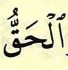 ٱلْحَقُّ